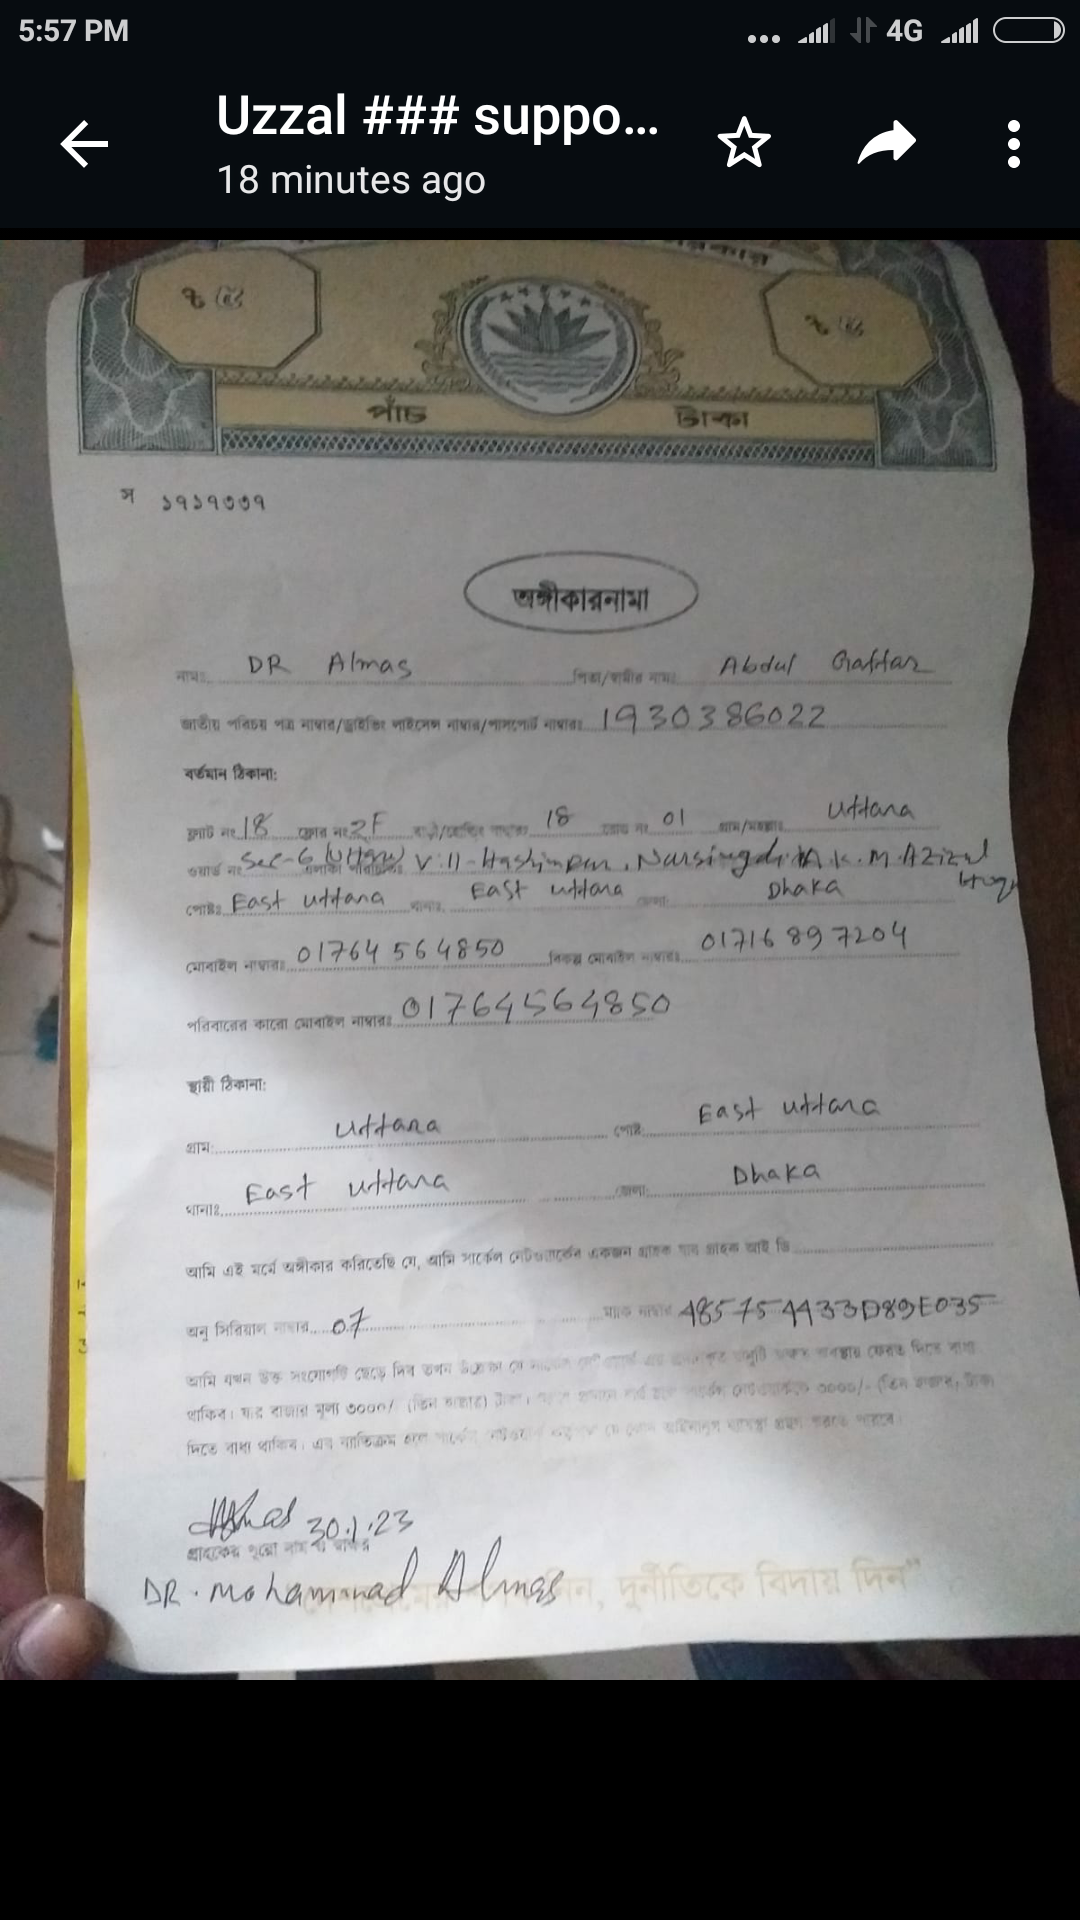 5:57 PM
4G
Uzzal ### suppo...
18 minutes ago
৳ ৫
৳ ৫
পাঁচ টাকা
স ১৭১৭৩৩৭
অঙ্গীকারনামা
নামঃ DR Almas পিতা/স্বামীর নামঃ Abdul Gaffar
জাতীয় পরিচয় পত্র নাম্বার/ড্রাইভিং লাইসেন্স নাম্বার/পাসপোর্ট নাম্বারঃ 1930386022
বর্তমান ঠিকানা:
ফ্লাট নং 18 ফ্লোর নং 2F বাড়ী/হোল্ডিং নাম্বারঃ 18 রোড নং 01 গ্রাম/মহল্লাঃ Uttara
ওয়ার্ড নং Sec-6 (Uttara) এলাকা পরিচিতিঃ Vill-Hashimpur, Narsingdi A.K.M. Azizul
পোষ্টঃ East Uttara থানাঃ East Uttara জেলা Dhaka Huq
মোবাইল নাম্বারঃ 01764564850 বিকল্প মোবাইল নাম্বারঃ 01716897204
পরিবারের কারো মোবাইল নাম্বারঃ 01764564850
স্থায়ী ঠিকানা:
গ্রাম: Uttara পোষ্ট: East Uttara
থানাঃ East Uttara জেলা: Dhaka
আমি এই মর্মে অঙ্গীকার করিতেছি যে, আমি সার্কেল নেটওয়ার্কের একজন গ্রাহক যার গ্রাহক আই ডি
অনু সিরিয়াল নাম্বার 07 ম্যাক নাম্বার 485754433D89E035
আমি যখন উক্ত সংযোগটি ছেড়ে দিব তখন ফেরত দিতে বাধ্য
থাকিব। যার বাজার মূল্য ৩০০০/ (তিন হাজার) টাকা। ৩০০০/- (তিন হাজার) টাকা
দিতে বাধ্য থাকিব। এর ব্যতিক্রম হলে সার্কেল নেটওয়ার্ক কর্তৃপক্ষ যে কোন আইনানুগ ব্যবস্থা গ্রহণ করতে পারবে।
Almas 30.1.23
গ্রাহকের পুরো নাম ও স্বাক্ষর
DR. Mohammad Almas
দুর্নীতিকে বিদায় দিন"